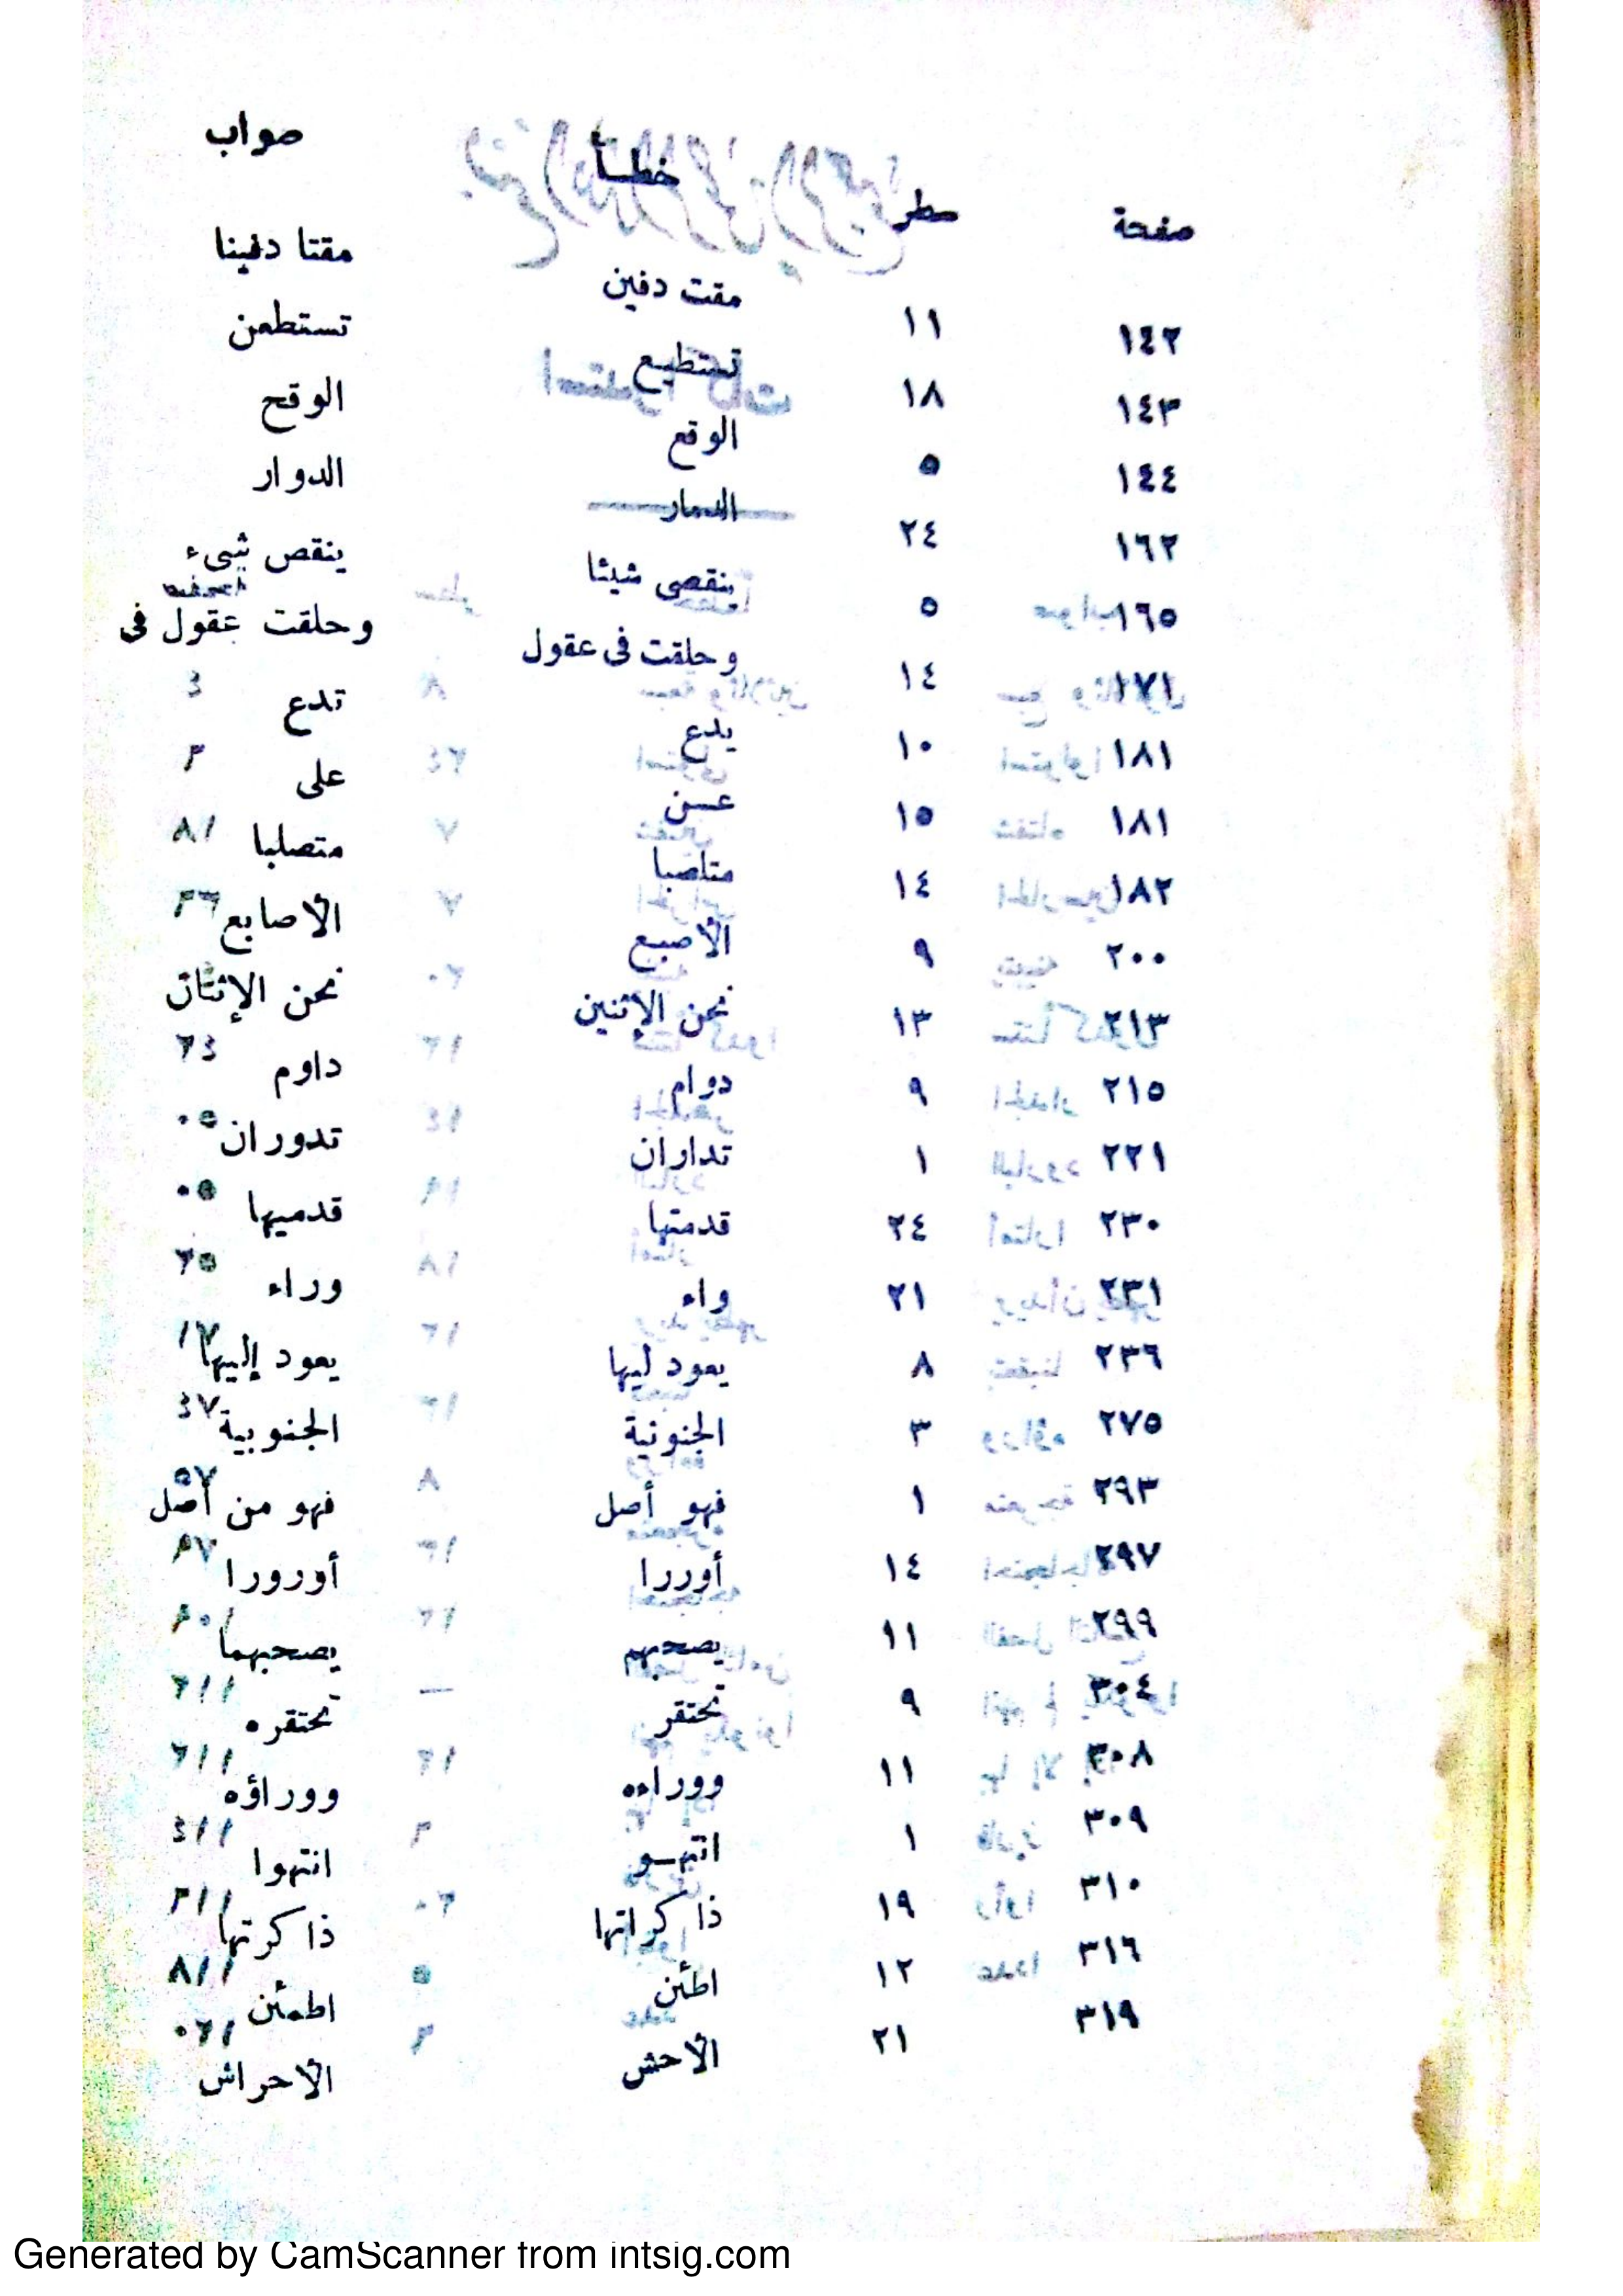 صفحة سطر خطأ صواب
١٤٢ ١١ مقت دفين مقتا دفينا
١٤٣ ١٨ تستطيع تستطعن
١٤٤ ٥ الوقع الوقح
١٦٢ ٢٤ الدمار الدوار
١٦٥ ٥ ينقصى شيئا ينقص شىء
١٧١ ١٤ وحلقت فى عقول وحلقت عقول فى
١٨١ ١٠ يدع تدع
١٨١ ١٥ عـن على
١٨٢ ١٤ متاصبا متصلبا
٢٠٠ ٩ الأصبع الأصابع
٢١٣ ١٣ نحن الإثنين نحن الإثنان
٢١٥ ٩ دوام داوم
٢٢١ ١ تداران تدوران
٢٣٠ ٢٤ قدمتها قدميها
٢٣١ ٢١ واء وراء
٢٣٦ ٨ يعود ليها يعود إليها
٢٧٥ ٣ الجنونية الجنوبية
٢٩٣ ١ فهو أصل فهو من أصل
٢٩٧ ١٤ أوررا أورورا
٢٩٩ ١١ يصحبهم يصحبهما
٣٠٤ ٩ تحتقر تحتقره
٣٠٨ ١١ ووراءه ووراؤه
٣٠٩ ١ انتهـو انتهوا
٣١٠ ١٩ ذاكراتها ذاكرتها
٣١٦ ١٢ اطئن اطمئن
٣١٩ ٢١ الأحش الأحراش
Generated by CamScanner from intsig.com